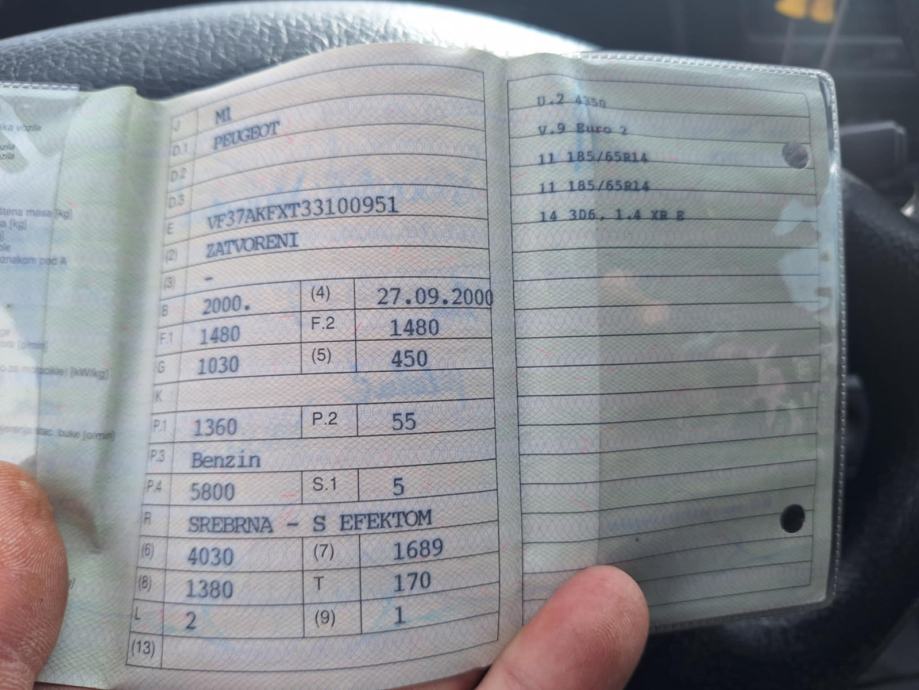 ka vozile
zila
štena masa [kg]
a [kg]
znakom pod A
J M1
D.1 PEUGEOT
D.2
D.3
E VF37AKFXT33100951
(2) ZATVORENI
(3) -
B 2000. (4) 27.09.2000
F.1 1480 F.2 1480
G 1030 (5) 450
K
P.1 1360 P.2 55
P.3 Benzin
P.4 5800 S.1 5
R SREBRNA - S EFEKTOM
(6) 4030 (7) 1689
(8) 1380 T 170
L 2 (9) 1
(13)
U.2 4350
V.9 Euro 2
11 185/65R14
11 185/65R14
14 306, 1.4 XR E